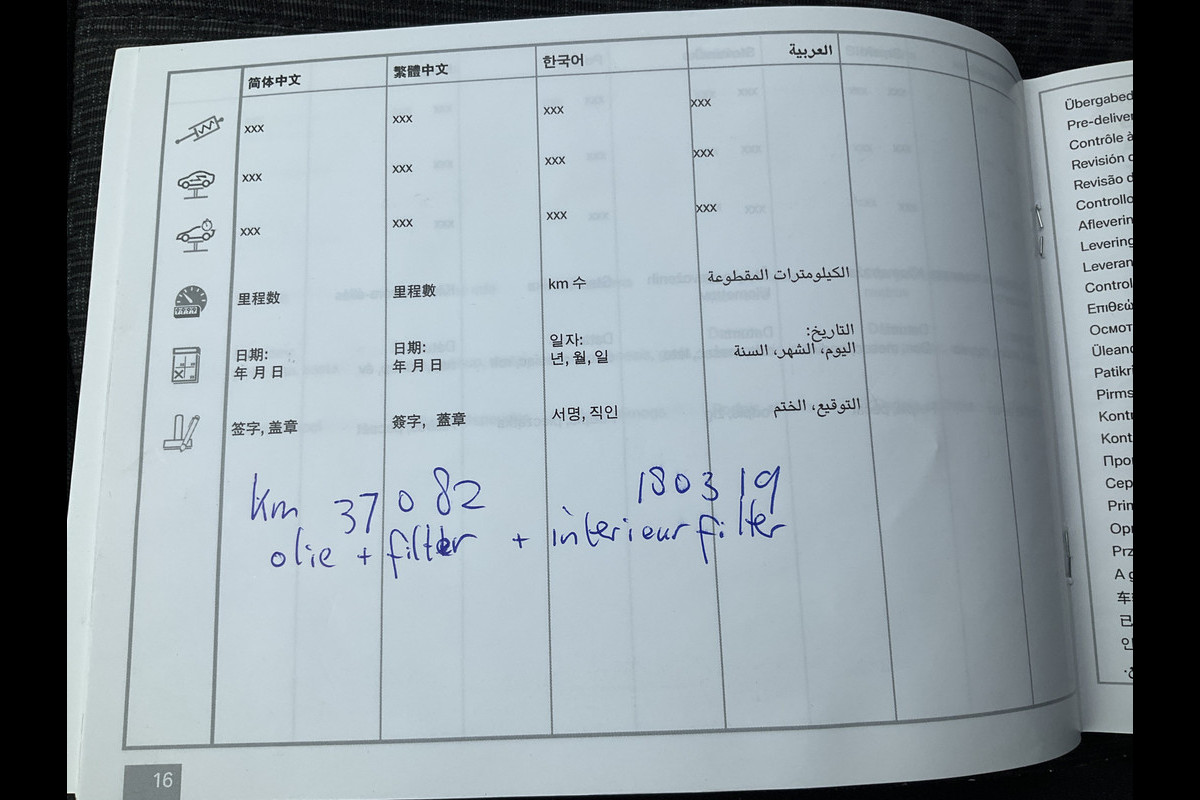 简体中文 繁體中文 한국어 العربية
xxx xxx xxx xxx
xxx xxx xxx xxx
xxx xxx xxx xxx
里程数 里程數 km 수 الكيلومترات المقطوعة
日期: 日期: 일자: التاريخ:
年 月 日 年 月 日 년, 월, 일 اليوم، الشهر، السنة
签字, 盖章 簽字, 蓋章 서명, 직인 التوقيع، الختم
km 37082 180319
olie + filter + interieurfilter
16
Übergabed
Pre-deliver
Contrôle à
Revisión d
Revisão d
Controllo
Afleverin
Levering
Leveran
Control
Επιθεώ
Осмот
Üleand
Patikri
Pirms
Kontr
Kont
Про
Сер
Prim
Opr
Prz
A g
车
已
인